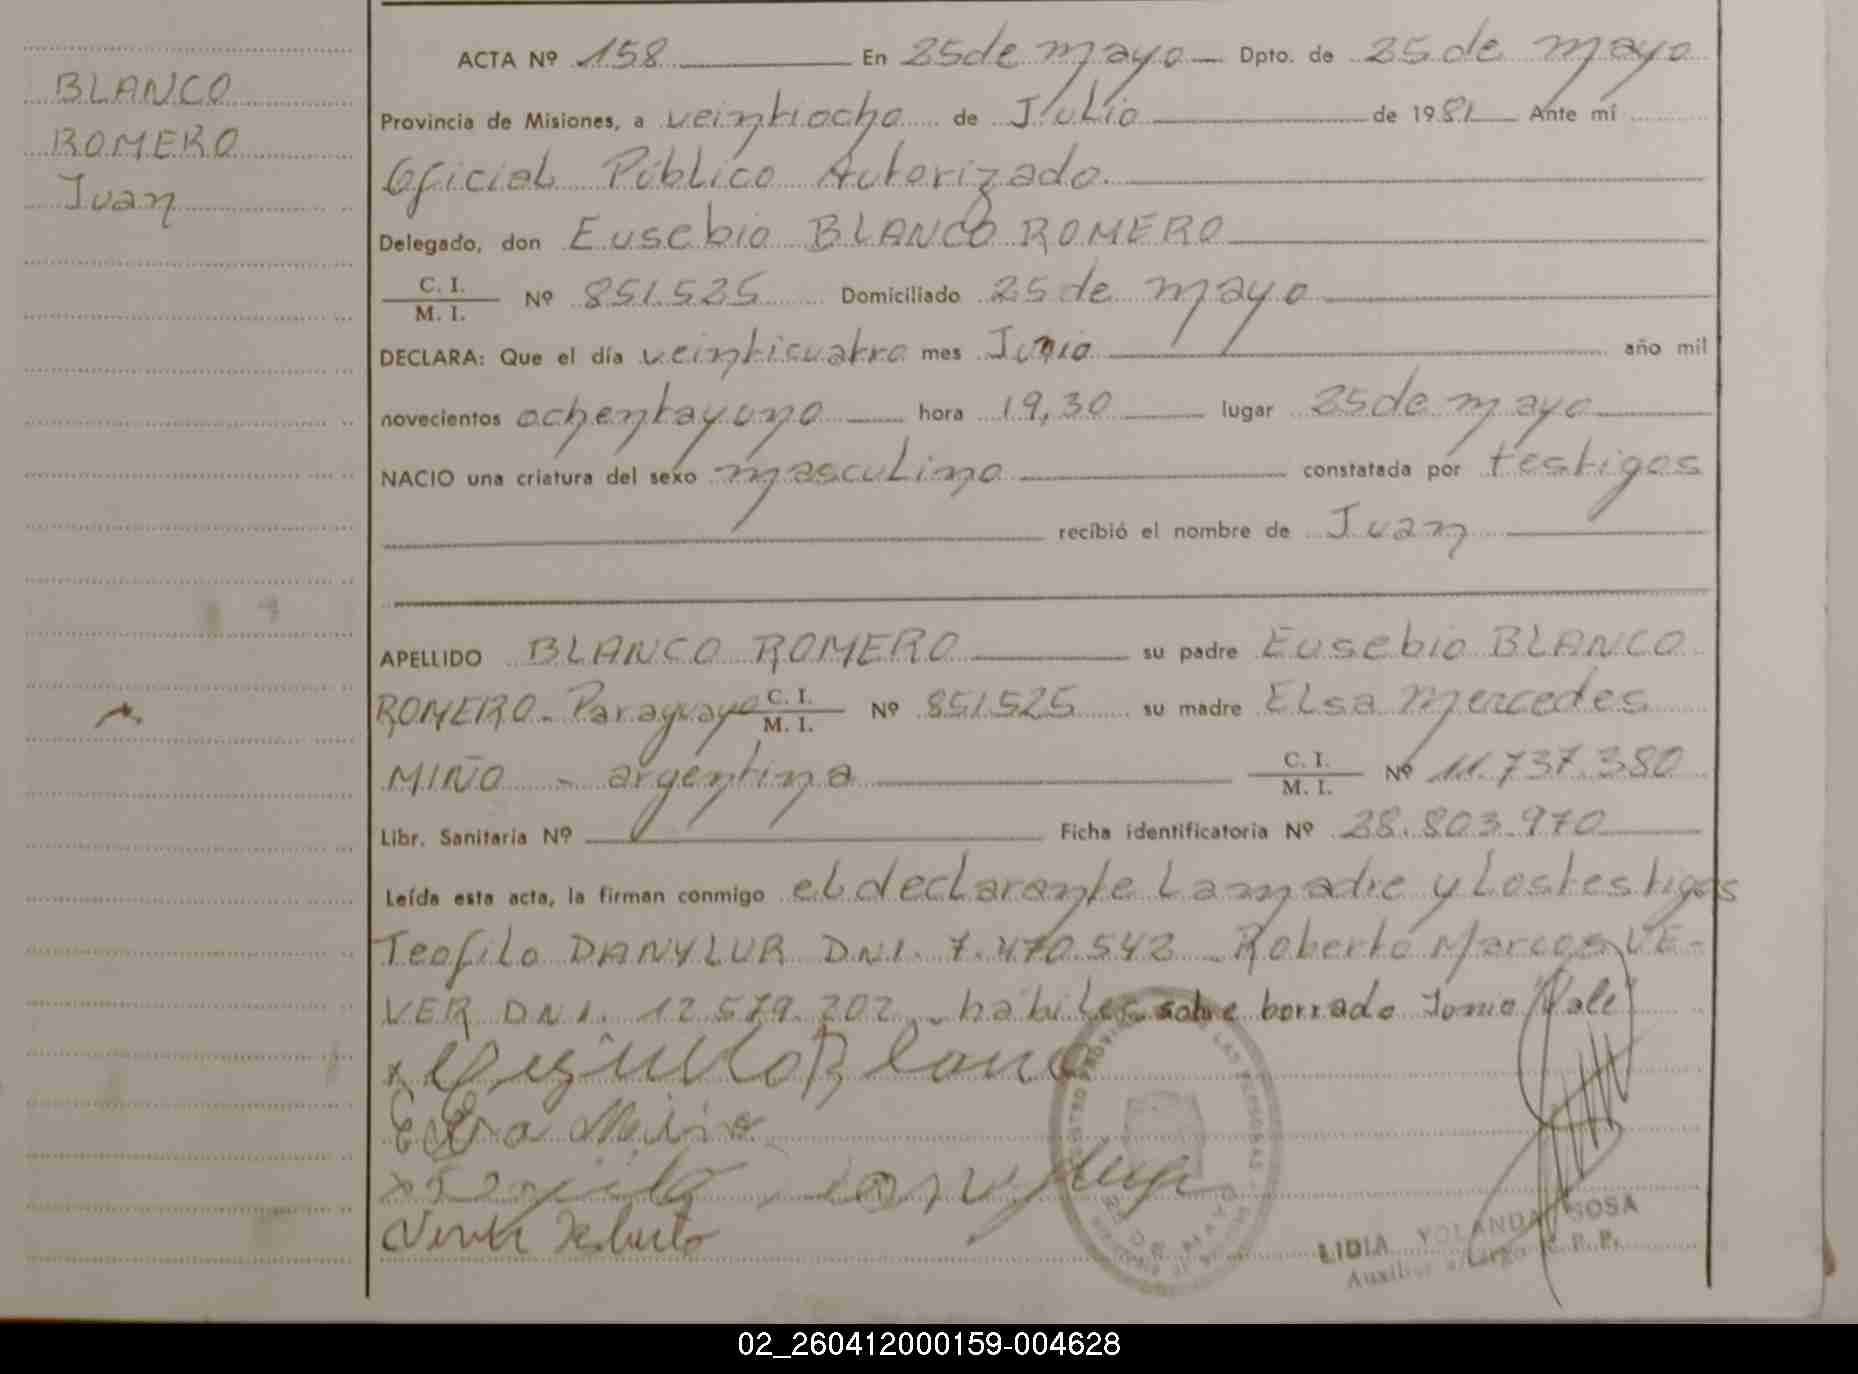 BLANCO
ROMERO
Juan
ACTA Nº 158 En 25 de mayo Dpto. de 25 de mayo
Provincia de Misiones, a veintiocho de Julio de 1981 Ante mí
Oficial Público Autorizado.
Delegado, don Eusebio BLANCO ROMERO
C. I.
M. I. Nº 851.525 Domiciliado 25 de mayo
DECLARA: Que el día veinticuatro mes Junio año mil
novecientos ochentayuno hora 19,30 lugar 25 de mayo
NACIO una criatura del sexo masculino constatada por testigos
recibió el nombre de Juan
APELLIDO BLANCO ROMERO su padre Eusebio BLANCO
ROMERO - Paraguayo C. I. M. I. Nº 851525 su madre Elsa Mercedes
MIÑO - argentina C. I. M. I. Nº 11.737.380
Libr. Sanitaria Nº Ficha identificatoria Nº 28.803.970
Leída esta acta, la firman conmigo el declarante La madre y Los testigos
Teofilo DANYLUR DNI. 7.470.542 - Roberto Marcos VE-
VER DNI. 12.579.202 - habiles sobre borrado Junio Vale
Elsa Miño
LIDIA YOLANDA SOSA
02_260412000159-004628